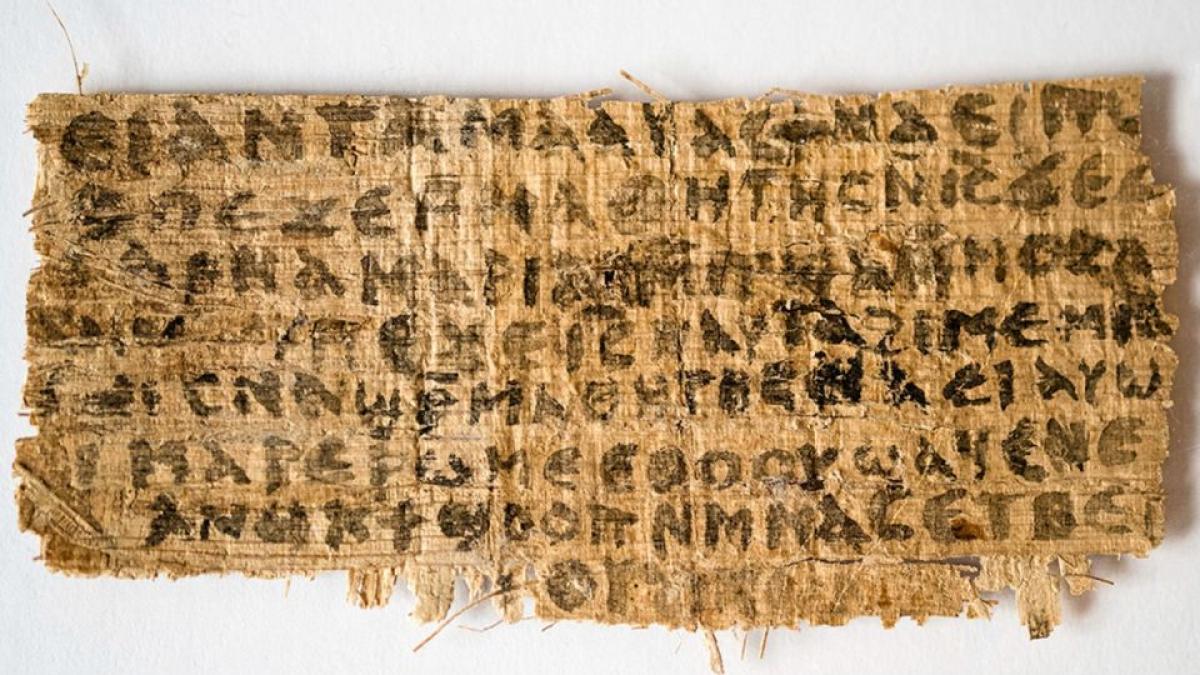 ⲉⲓ ⲁⲛ ⲧⲁⲙⲁⲁⲩ ⲁⲥϯ ⲛⲁⲉⲓ ⲡ
ⲡⲉϫⲉ ⲙⲙⲁⲑⲏⲧⲏⲥ ⲛⲓ̅ⲥ̅ ϫⲉ ⲥ
ⲁⲣⲛⲁ ⲙⲁⲣⲓⲁⲙ ⲙⲡϣⲁ ⲙⲙⲟⲥ ⲁⲛ
ⲡⲉϫⲉ ⲓ̅ⲥ̅ ⲛⲁⲩ ⲧⲁϩⲓⲙⲉ ⲙⲛ
ⲥⲛⲁϣⲣ̅ⲙⲁⲑⲏⲧⲏⲥ ⲛⲁⲉⲓ ⲁⲩⲱ
ⲓ ⲙⲁⲣⲉⲣⲱⲙⲉ ⲉⲑⲟⲟⲩ ϣⲁϥⲉ ⲛⲉ
ⲁⲛⲟⲕ ϯϣⲟⲟⲡ ⲛⲙⲙⲁⲥ ⲉⲧⲃⲉ ⲡ